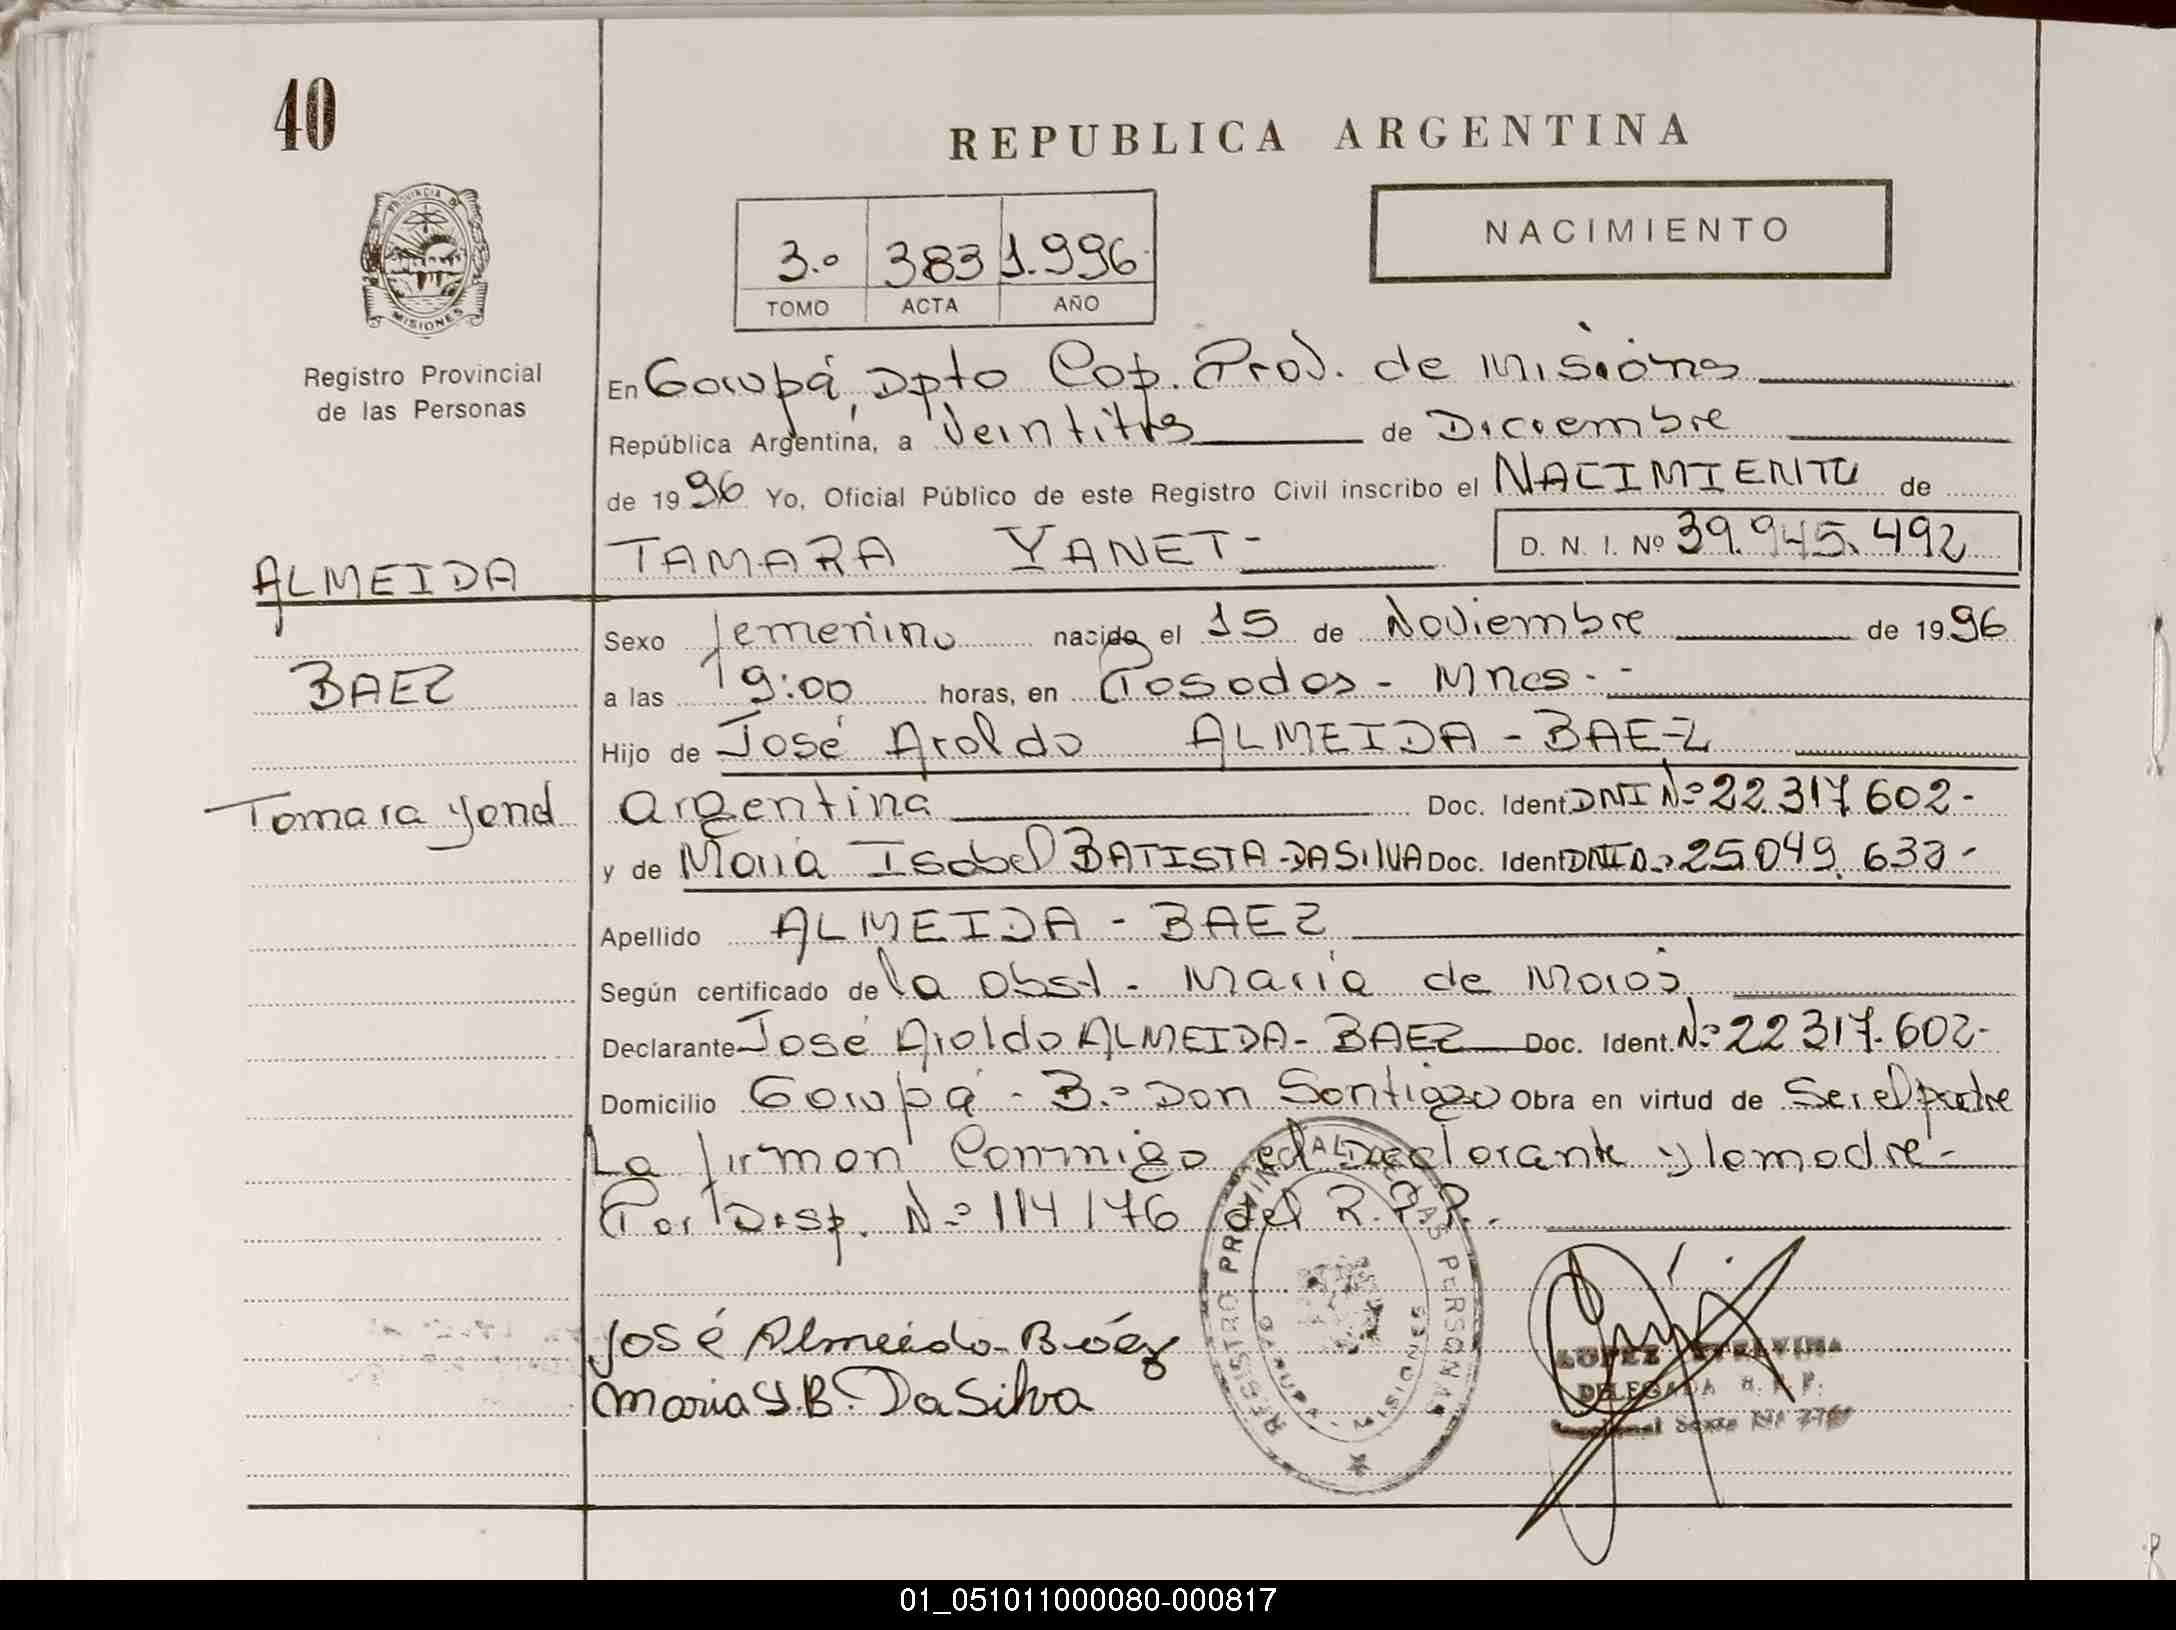 40
REPUBLICA ARGENTINA
NACIMIENTO
3.º 383 1.996
TOMO ACTA AÑO
PROVINCIA DE
MISIONES
Registro Provincial
de las Personas
En Garupá, Dpto Cap. Prov. de Misiones
República Argentina, a Veintitrés de Diciembre
de 1996 Yo, Oficial Público de este Registro Civil inscribo el NACIMIENTO de
TAMARA YANET- D. N. I. Nº 39.945.492
ALMEIDA
BAEZ
Tamara
Sexo femenino nacida el 15 de Noviembre de 1996
a las 19:00 horas, en Posadas - Mnes.-
Hijo de José Aroldo ALMEIDA - BAEZ
Argentina Doc. Ident. DNI Nº 22.317.602-
y de María Isabel BATISTA-DASILVA Doc. Ident DNI Nº 25.049.
Apellido ALMEIDA - BAEZ
Según certificado de la Obst. María de
Declarante José Aroldo ALMEIDA - BAEZ Doc. Ident. Nº 22.317.602-
Domicilio Garupá - Bº Don Santiago Obra en virtud de Ser el padre
La firman Conmigo el Declarante y la madre-
Por Disp. Nº 114/76 del R.P.P.-
José Almeida-Báez
Maria I.B. DaSilva
REGISTRO PROVINCIAL DE LAS PERSONAS
GARUPA - MISIONES
LOPEZ ETELVINA
DELEGADA R. P. P.
01_051011000080-000817